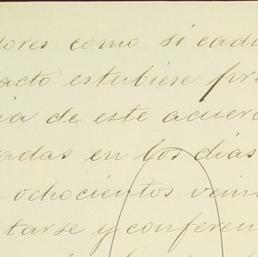 dores como si cada
acto estubiese pre
ia de este acuerd
adas en los dias
ochocientos vein
tarse y conferen